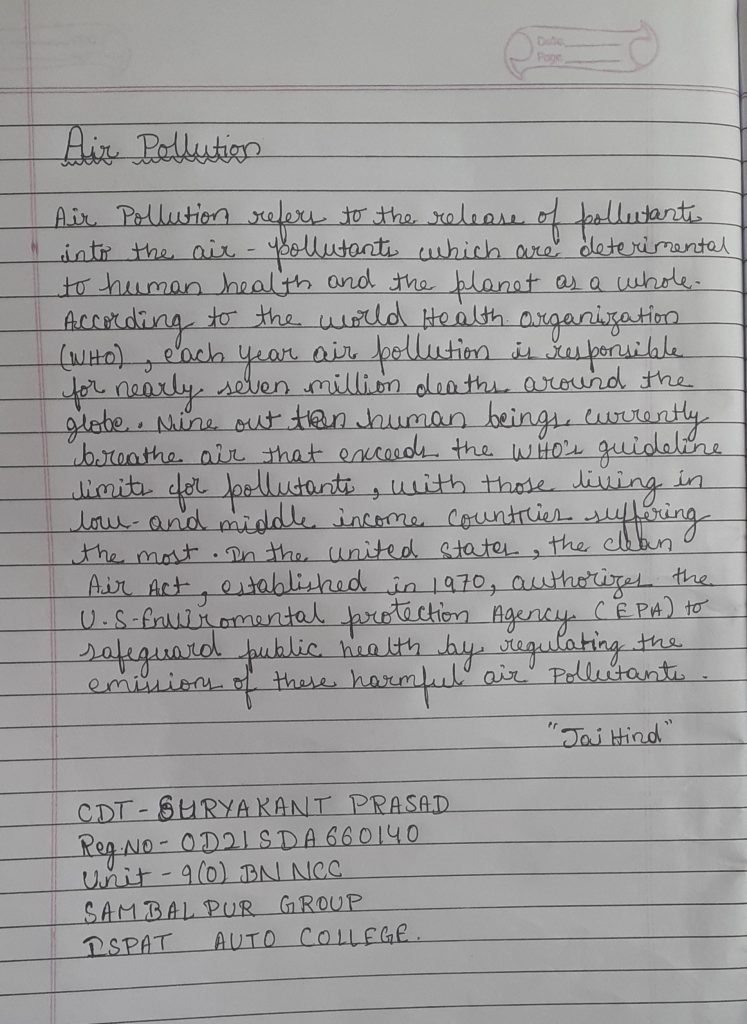 Date
Page
Air Pollution
Air Pollution refers to the release of pollutants
into the air - pollutants which are deterimental
to human health and the planet as a whole.
According to the world Health organization
(WHO), each year air pollution is responsible
for nearly seven million deaths around the
globe. Nine out ten human beings currently
breathe air that exceeds the WHO's guideline
limits for pollutants, with those living in
low- and middle income countries suffering
the most. In the united states, the clean
Air Act, established in 1970, authorizes the
U.S-Enviromental protection Agency (EPA) to
safeguard public health by regulating the
emissions of these harmful air Pollutants.
"Jai Hind"
CDT - SURYAKANT PRASAD
Reg.No - OD21SDA660140
Unit - 9(O) BN NCC
SAMBALPUR GROUP
ISPAT AUTO COLLEGE.